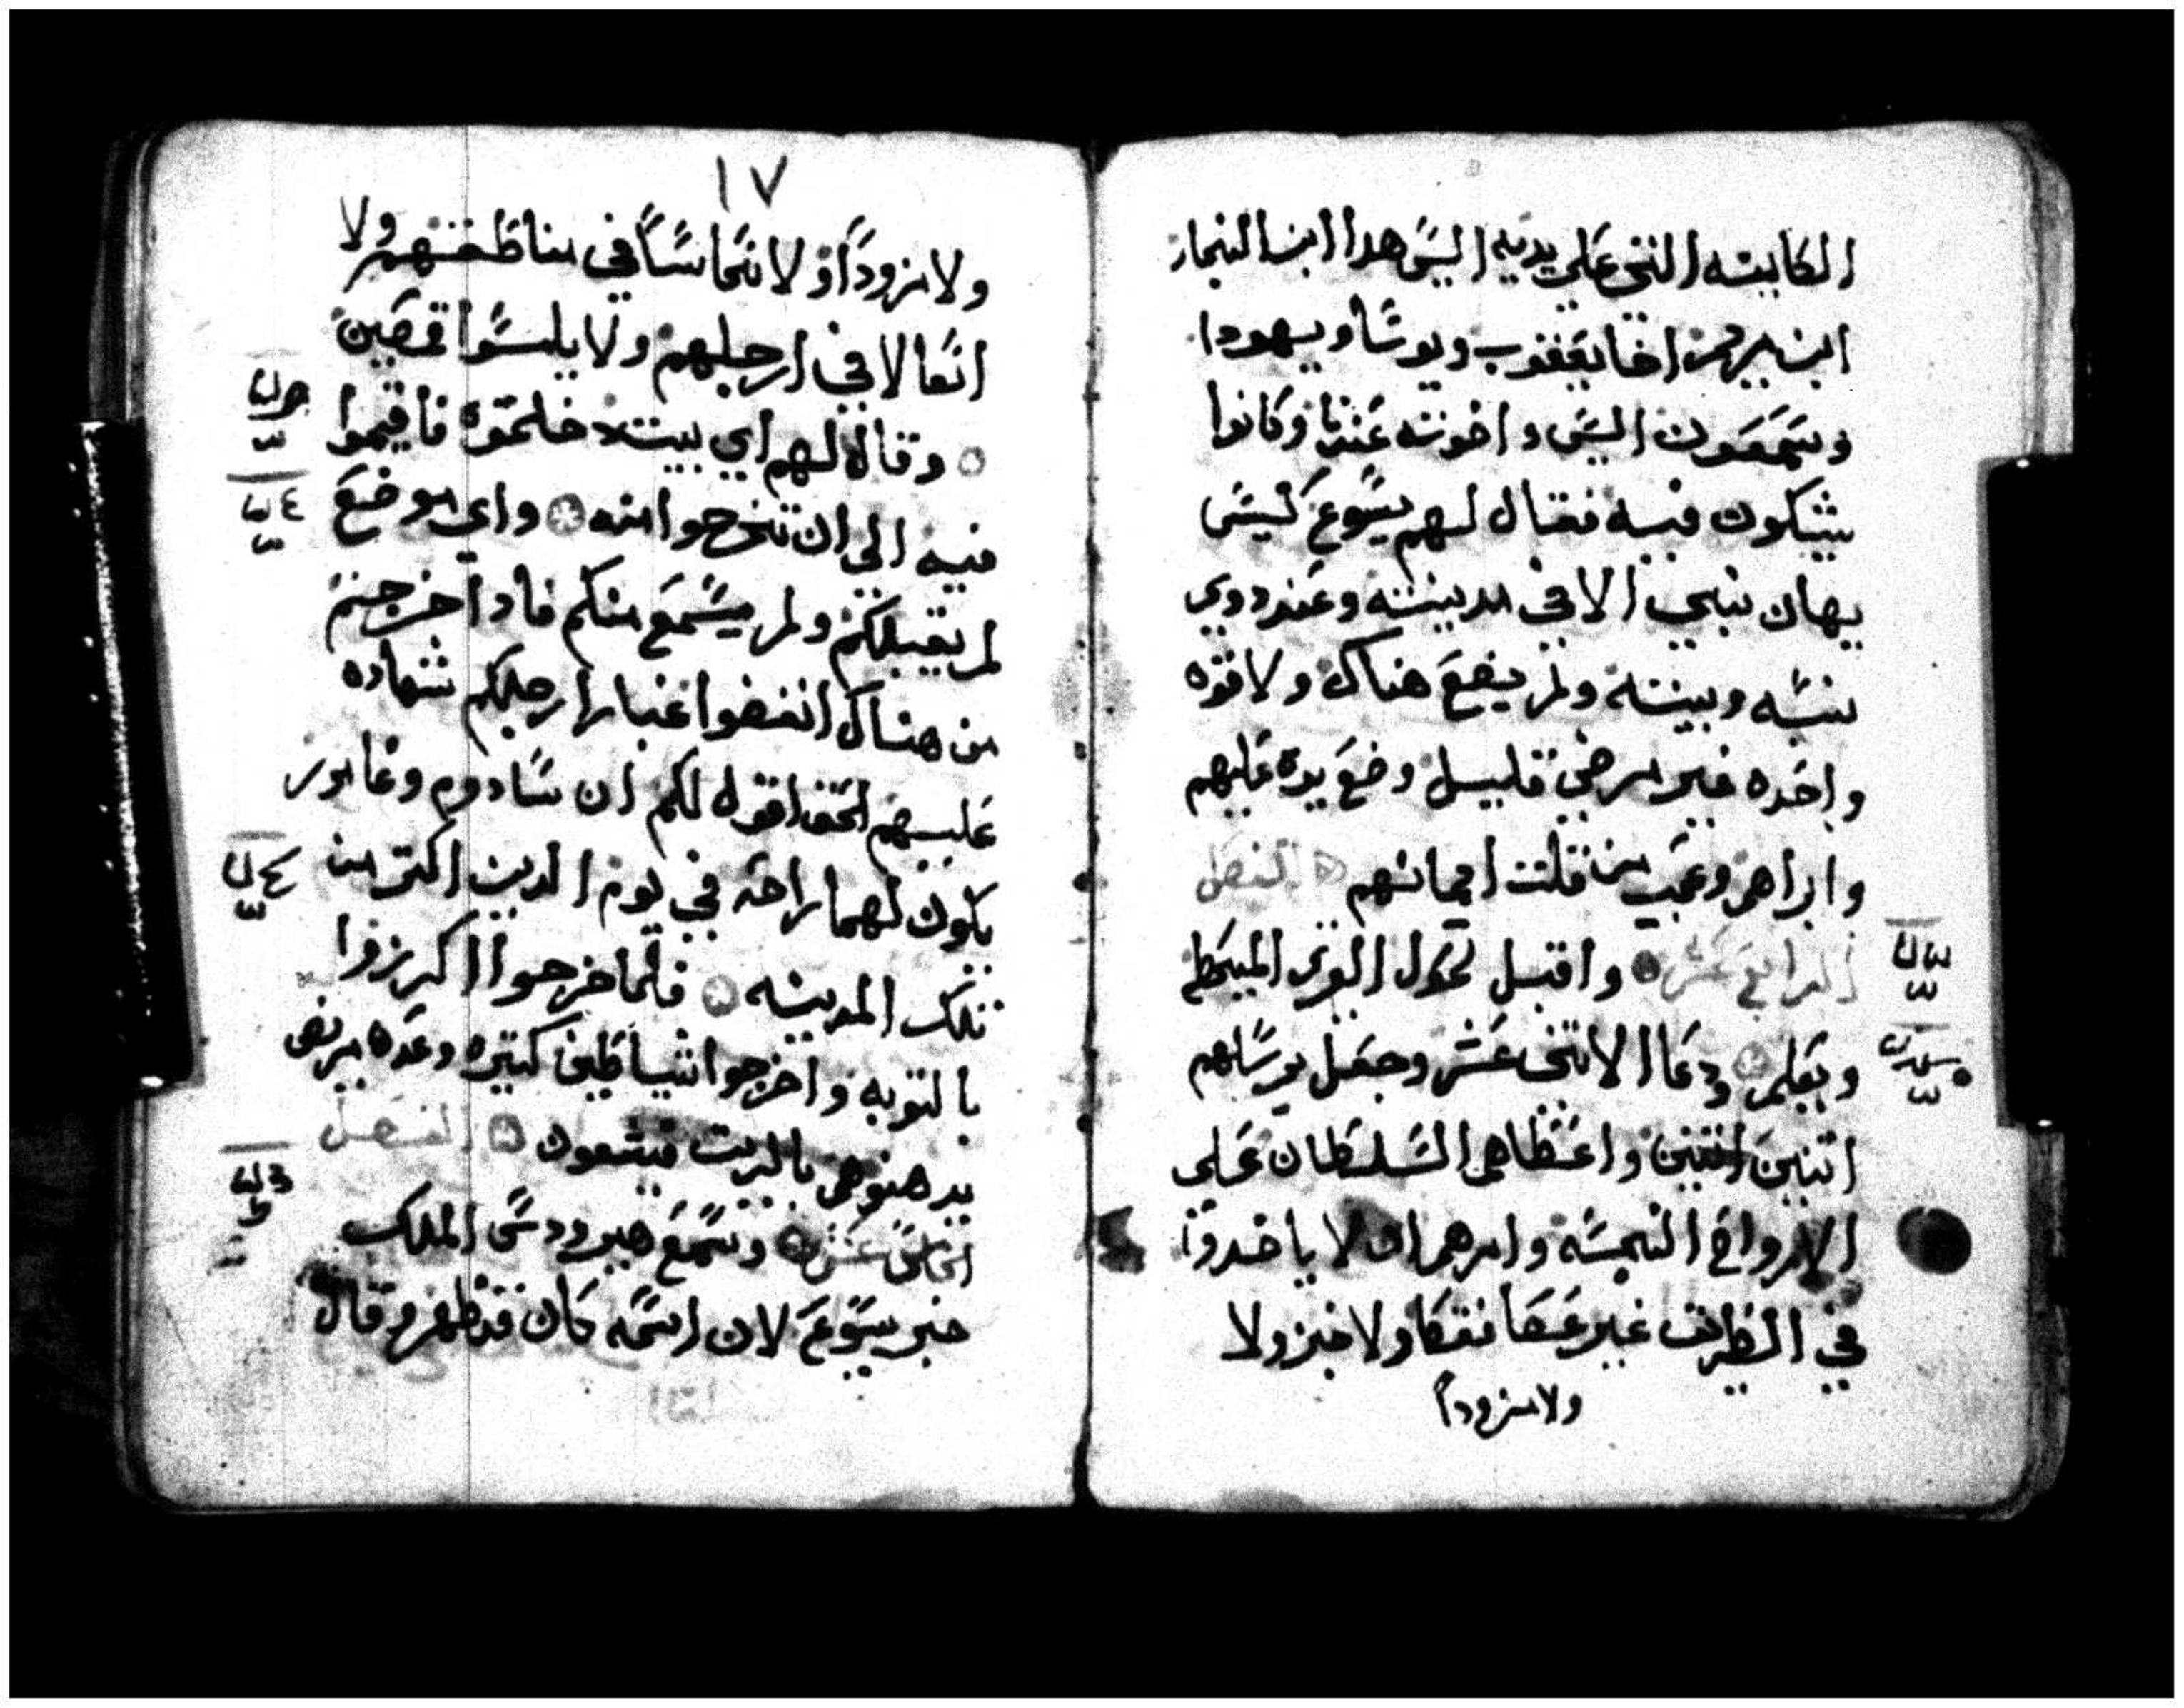 الكاينه التي على يديه اليس هدا ابن النجار
ابن مريم اخا يعقوب ويوسا ويهودا
وسمعون اليس واخوته عندنا وكانوا
يشكون فيه فقال لهم يسوع ليس
يهان نبي الا في مدينته وعند دوي
نسبه وبيته ولم يضع هناك ولا قوه
واحده غير مرضى قليل وضع يده عليهم
وابراهم وعجب من قلت ايمانهم الفصل
الرابع عشر واقبل لحول القرى المحيطه
ويعلم ودعا الاتنى عشر وجعل يرسلهم
اتنين اتنين واعطاهم السلطان على
الارواح النجسه وامرهم ان لا ياخدوا
في الطريق غير عصا فقط ولا خبز ولا
ولا مزوداً
١٧
ولا مزوداً ولا نحاساً في مناطقهم ولا
انعالا في ارجلهم ولا يلبسوا قمصين
وقال لهم اي بيت دخلتموه فاقيموا
فيه الى ان تخرجوا منه واي موضع
لم يقبلكم ولم يسمع منكم فادا خرجتم
من هناك انفضوا غبار ارجلكم شهاده
عليهم الحق اقول لكم ان سادوم وغامور
يكون لهما راحه في يوم الدين اكتر من
تلك المدينه فلما خرجوا اكرزوا
بالتوبه واخرجوا شياطين كتيره وعده مرضى
يدهنوهم بالزيت فيشفون الفصل
الخامس عشر وسمع هيرودس الملك
خبر يسوع لان اسمه كان قد ظهر وقال